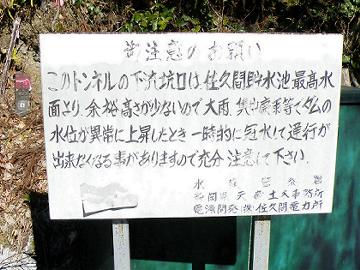 御注意のお願い
このトンネルの下流坑口は、佐久間貯水池最高水
面より、余裕高さが少ないので大雨、集中豪雨等でダムの
水位が異常に上昇したとき一時的に冠水して通行が
出来なくなる事がありますので充分注意して下さい。
水窪警察署
静岡県天竜土木事務所
電源開発(株)佐久間電力所